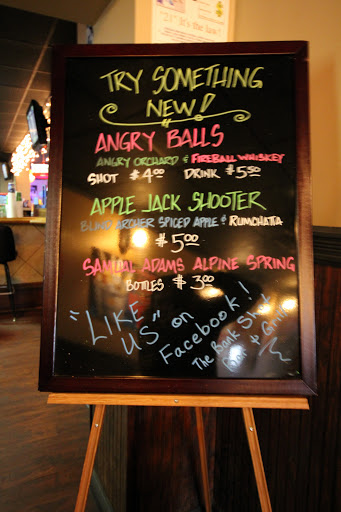 "21" It's the law!
TRY SOMETHING
NEW!
ANGRY BALLS
ANGRY ORCHARD & FIREBALL WHISKEY
SHOT $4.00 DRINK $5.50
APPLE JACK SHOOTER
BLIND ARCHER SPICED APPLE & RUMCHATA
$5.00
SAMUAL ADAMS ALPINE SPRING
BOTTLES $3.00
"LIKE"
US on
Facebook!
The Bank Shot
Bar & Grill